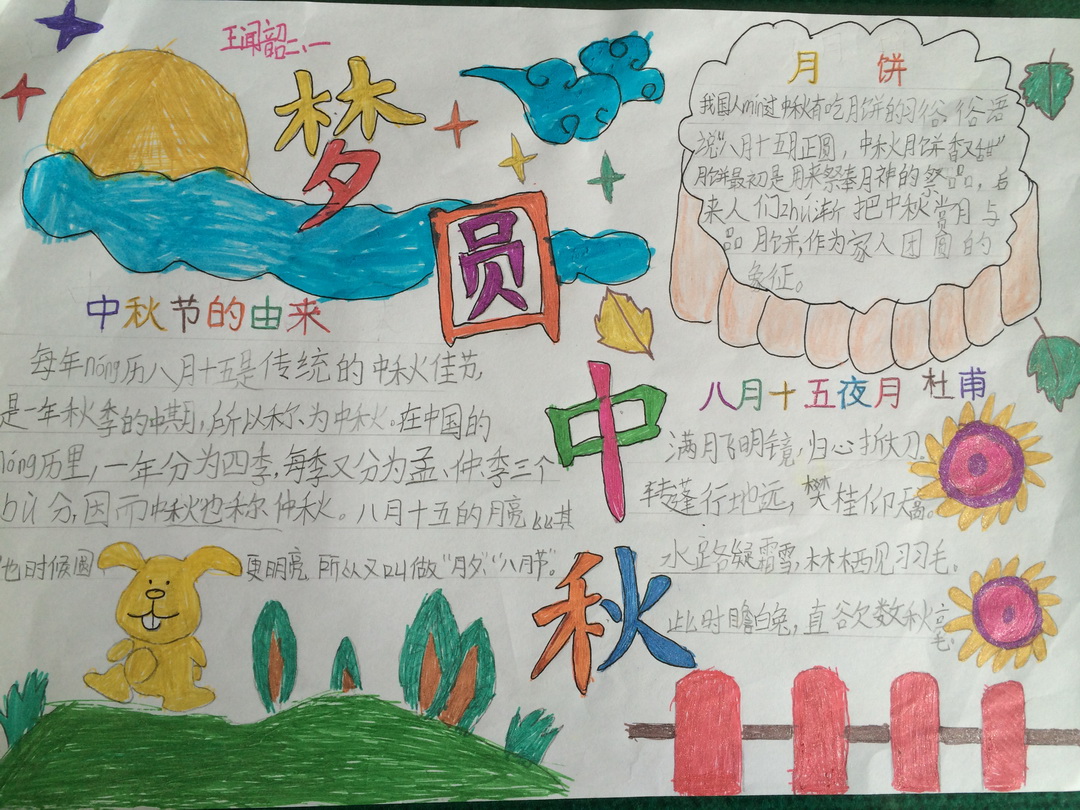 王闻韶二、一
梦
圆
中
秋
中秋节的由来
每年nóng历八月十五是传统的中秋佳节,
是一年秋季的中期,所以称为中秋。在中国的
nóng历里,一年分为四季,每季又分为孟、仲、季三个
bù分,因而中秋也称仲秋。八月十五的月亮比其
他时候圆
更明亮 所以又叫做“月夕”、“八月节”。
月饼
我国人mín过中秋有吃月饼的习俗 俗语
说“八月十五月正圆,中秋月饼香又甜”
月饼最初是用来祭奉月神的祭品,后
来人们zhú渐把中秋赏月与
品月饼,作为家人团圆的
象征。
八月十五夜月 杜甫
满月飞明镜,归心折大刀。
转蓬行地远,攀桂仰天高。
水路疑霜雪,林栖见羽毛。
此时瞻白兔,直欲数秋毫